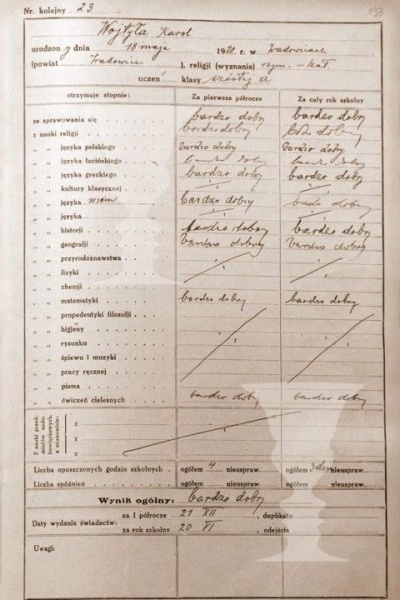 Nr. kolejny 23 193
Wojtyła Karol
urodzony dnia 18 maja 1920 r. w Wadowicach
(powiat Wadowice ), religii (wyznania) rzym. - kat.
uczeń klasy szóstej a
otrzymuje stopnie: Za pierwsze półrocze Za cały rok szkolny
ze sprawowania się bardzo dobry bardzo dobry
z nauki religii bardzo dobry b. dobry
" " języka polskiego bardzo dobry bardzo dobry
" " języka łacińskiego bardzo dobry bardzo dobry
" " języka greckiego bardzo dobry bardzo dobry
" " kultury klasycznej
" " języka niem bardzo dobry bardzo dobry
" " języka
" " historji bardzo dobry bardzo dobry
" " geografji bardzo dobry bardzo dobry
" " przyrodoznawstwa
" " fizyki
" " chemji
" " matematyki bardzo dobry bardzo dobry
" " propedeutyki filozofji
" " higjeny
" " rysunku
" " śpiewu i muzyki
" " pracy ręcznej
" " pisma
" " ćwiczeń cielesnych bardzo dobry bardzo dobry
Z nauki przedmiotów nadobowiązkowych, a mianowicie:
z
z
z
Liczba opuszczonych godzin szkolnych ogółem 4 nieuspraw. ogółem nieuspraw.
Liczba spóźnień ogółem nieuspraw. ogółem nieuspraw.
Wynik ogólny: bardzo dobry
Daty wydania świadectw:
za I półrocze 21 XII , duplikatu
za rok szkolny 20 VI , odejścia
Uwagi: